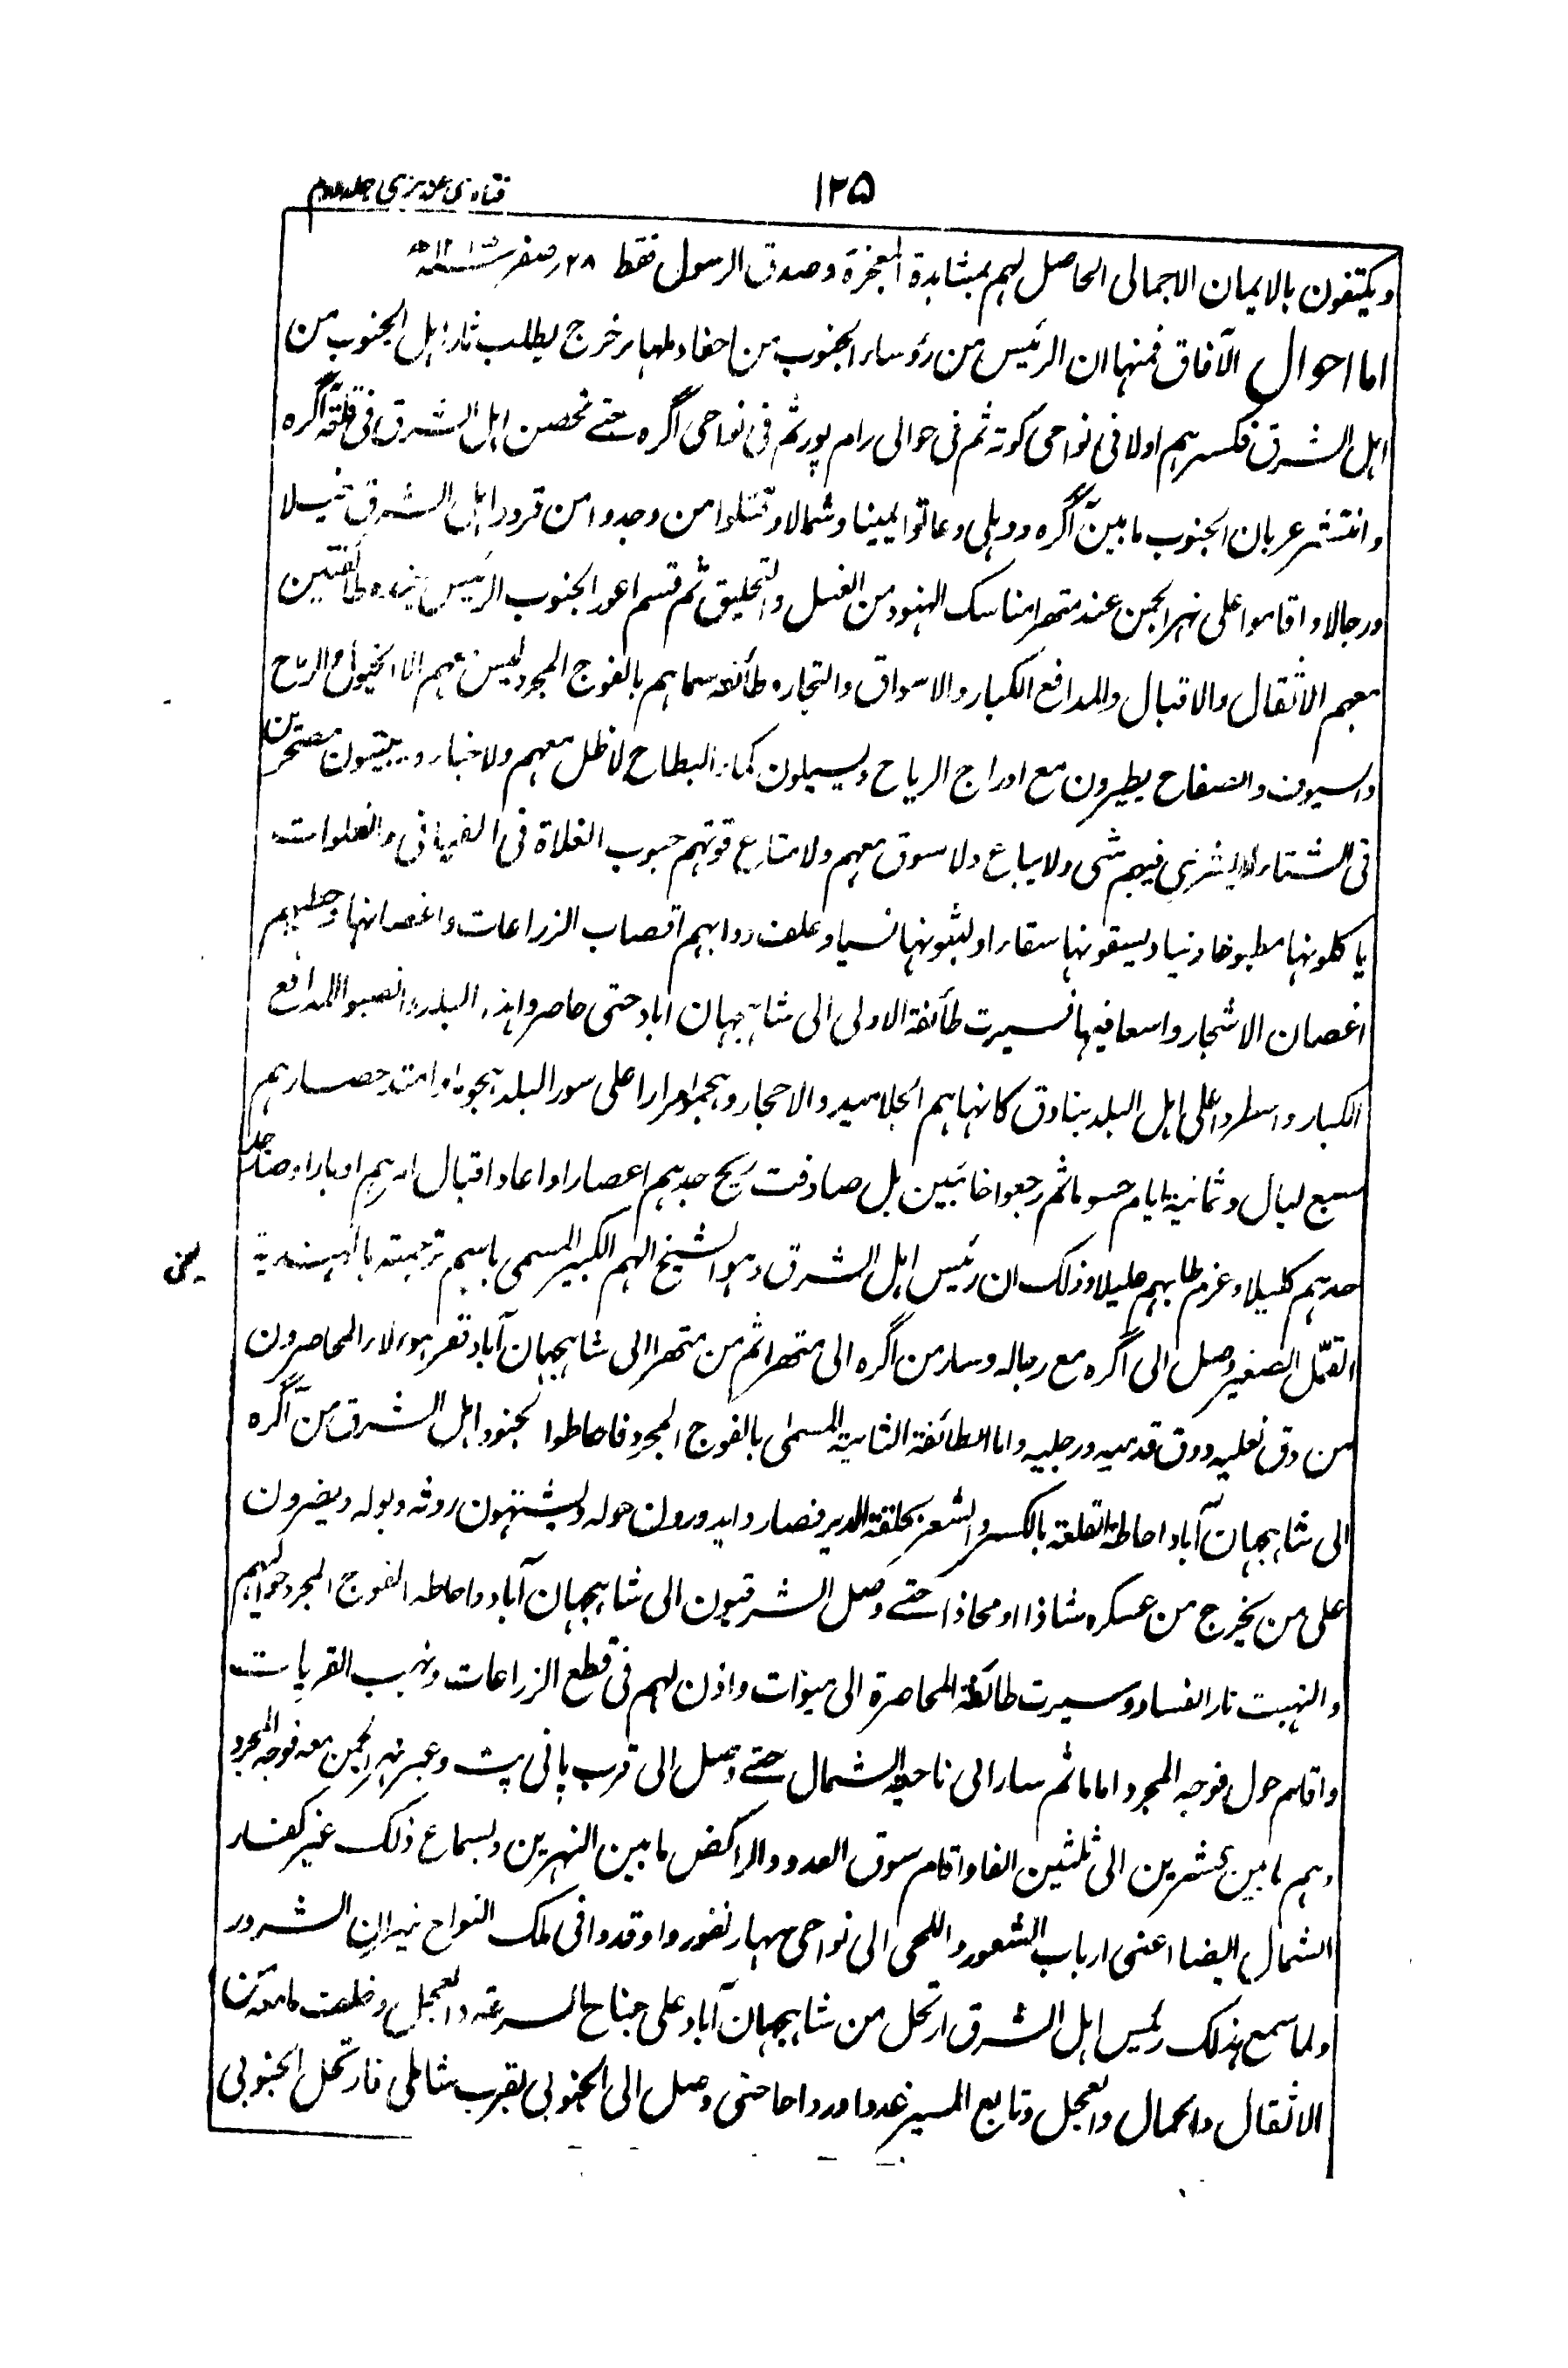 ۱۲۵
فتاوی عزیزی جلد دوم
ویکتفون بالایمان الاجمالی الحاصل لہم بمشاہدۃ المعجزۃ وصدق الرسول فقط ۲۸ صفر
اما احوال الآفاق فمنہا ان الرئیس من رؤساء الجنوب من احفاد ملہار خرج یطلب ثار اہل الجنوب من
اہل الشرق فکسرہم اولا فی نواحی کوتہ ثم فی حوالی رام پور ثم فی نواحی آگرہ حتے تحصن اہل الشرق فی قلعۃ آگرہ
وانتشر عربان الجنوب مابین آگرہ ودہلی وعاثوا یمینا وشمالا وقتلوا من وجدوا من قرود اہل الشرق خیلا
ورجالا واقاموا علی نہر الجمن عند متھرا مناسک الہنود من الغسل والتحلیق ثم قسم اعور الجنوب الرئیس جنودہ طائفتین
معہم الاثقال والاقبال والمدافع الکبار والاسواق والتجارہ طائفہ سماہم بالفوج المجرد لیس معہم الا الخیول والرماح
والسیوف والصفاح یطیرون مع ادراج الریاح ویسیلون کماء البطاح لاظل معہم ولا خبار ویبیتون مصتحرین
فی الشتاء لا یشتری فیہم شی ولا یباع ولا سوق معہم ولا متاع قوتہم حبوب الغلاۃ فی الفیافی والفلوات
یاکلونہا مطبوخا ونیا ویسقونہا سقاء او یشوونہا نسیا وعلف دوابہم اقصاب الزراعات واغصانہا وحطبہم
اغصان الاشجار واسعافیہا فسیرت طائفۃ الاولی الی شاہجہان اباد حتی حاصروا ہذہ البلدہ وانصبوا المدافع
الکبار واسطروا علی اہل البلد بنادق کانہا ہم الجلامید والاحجار وہجموا مرارا علی سور البلد بجوہ وامتد حصارہم
سبع لیال وثمانیۃ ایام حسوما ثم رجعوا خائبین بل صادفت ریح جدہم اعصارا واعاد اقبال امرہم ادبارا وصار حد
حدہم کلیلا وعزم طالبہم علیلا وذلک ان رئیس اہل الشرق وہو الشیخ الہم الکبیر المسمی باسم ترجمتہ بالہندیۃ
القمّل الصغیر وصل الی آگرہ مع رجالہ وسار من اگرہ الی متھرا ثم من متھرا الی شاہجہان آباد تفر ہولاء المحاصرون
من دق نعلیہ ودق قدمیہ ورجلیہ واما الطائفۃ الثانیۃ المسمی بالفوج المجرد فاحاطوا بجنود اہل الشرق من آگرہ
الی شاہجہان آباد احاطۃ القلفۃ بالکسر والشعر بحلقۃ الدبر فصاروا یدورون حولہ ویشتہون روثہ وبولہ ویضرون
علی من یخرج من عسکرہ شاذا او محاذا حتے وصل الشرقیون الی شاہجہان آباد واحاطہ الفوج المجرد حوالیہم
والتہبت نار الفساد وسیرت طائفۃ المحاصرۃ الی میوات واذن لہم فی قطع الزراعات ونہب القریات
واقام حول فوجہ المجرد اماما ثم سار الی ناحیۃ الشمال حتے وصل الی قرب پانی پت وعبر نہر الجمن معہ فوجہ المجرد
وہم مابین عشرین الی ثلثین الفا واقام سوق العدو والراکض مابین النہرین وبسماع ذلک غیر کفار
الشمال ایضا اعنی ارباب الشعور واللحی الی نواحی سہارنفور واوقدوا فی تلک النواح نیران الشرور
ولما سمع بذلک رئیس اہل الشرق ارتحل من شاہجہان آباد علی جناح السرعۃ والعجل وخلف مامعہ من
الاثقال والجمال والعجل وتابع المسیر غدوا ورواحا حتی وصل الی الجنوبی بقرب شاملی فارتحل الجنوبی